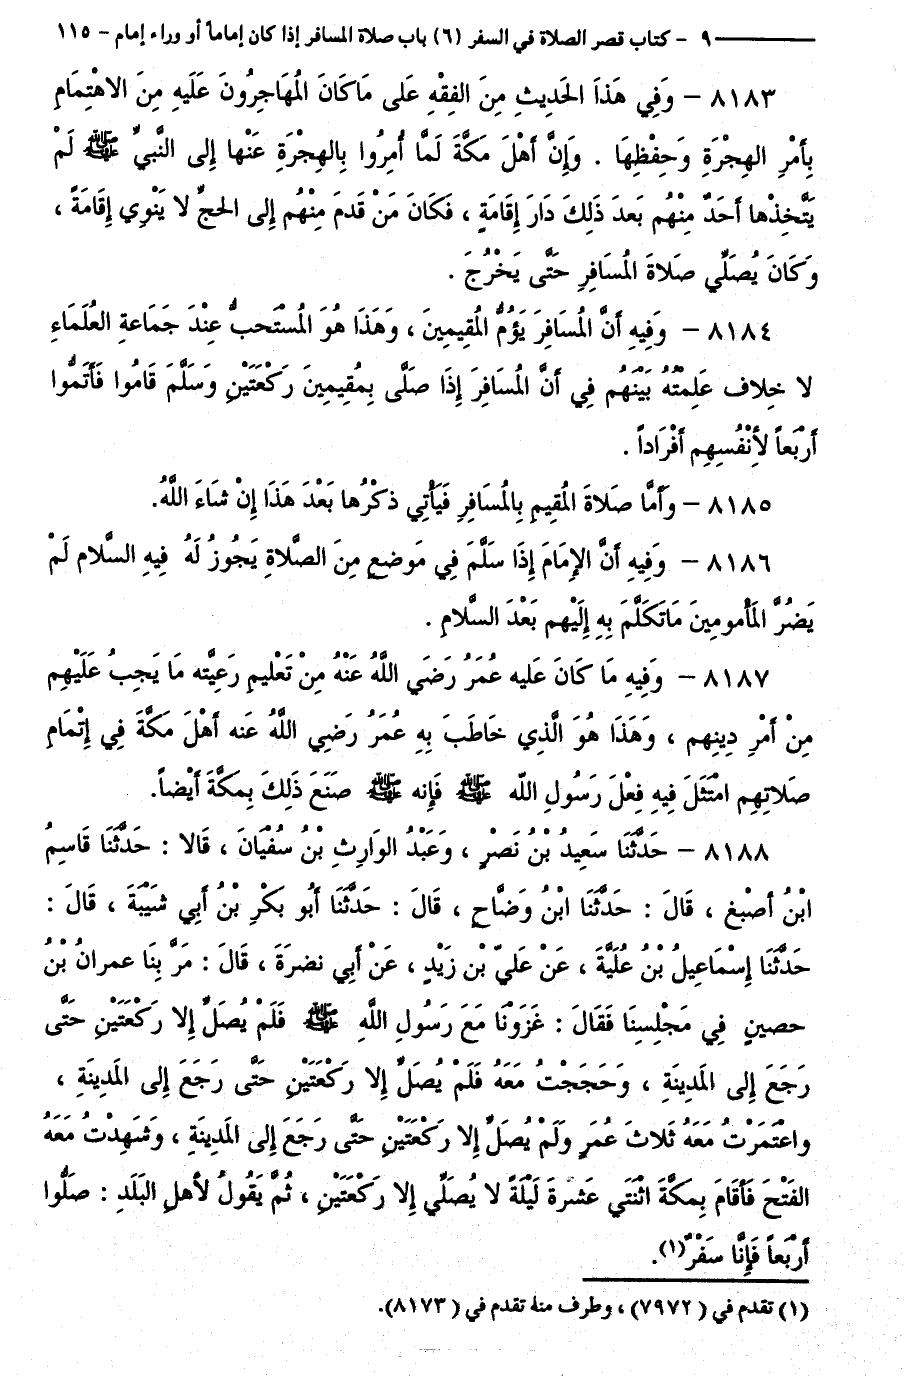 ٩ - كتاب قصر الصلاة في السفر (٦) باب صلاة المسافر إذا كان إماماً أو وراء إمام - ١١٥
٨١٨٣ - وَفِي هَذَا الحَدِيثِ مِنَ الفِقْهِ عَلى مَاكَانَ المُهَاجِرُونَ عَلَيهِ مِنَ الاهْتِمَامِ
بِأَمْرِ الهِجْرَةِ وَحِفْظِهَا . وَإِنَّ أَهْلَ مَكَّةَ لَمَّا أُمِرُوا بِالهِجْرَةِ عَنْها إِلى النَّبيِّ ﷺ لَمْ
يَتَّخِذْها أَحَدٌ مِنْهُم بَعدَ ذَلِكَ دَارَ إِقَامَةٍ ، فَكَانَ مَنْ قَدمَ مِنْهُم إِلى الحَجِّ لا يَنْوِي إِقَامَةً ،
وَكَانَ يُصَلِّي صَلاةَ المُسَافِرِ حَتَّى يَخْرُجَ .
٨١٨٤ - وَفِيهِ أَنَّ المُسَافِرَ يَؤُمُّ المُقِيمِينَ ، وَهَذَا هُوَ المُسْتَحبُّ عِنْدَ جَمَاعَةِ العُلَمَاءِ
لا خِلاف عَلِمتُهُ بَيْنَهُم فِي أَنَّ المُسَافِرَ إِذَا صَلَّى بِمُقِيمِينَ رَكْعَتَيْنِ وَسَلَّمَ قَامُوا فَأَتَمُّوا
أَرْبَعاً لأِنْفُسِهِم أَفْرَاداً .
٨١٨٥ - وَأَمَّا صَلاةَ المُقِيمِ بِالمُسَافِرِ فَيَأْتِي ذكْرُها بَعْدَ هَذَا إِنْ شاءَ اللَّهُ.
٨١٨٦ - وَفِيهِ أَنَّ الإِمَامَ إِذَا سَلَّمَ فِي مَوضعٍ مِنَ الصَّلاةِ يَجُوزُ لَهُ فِيهِ السَّلام لَمْ
يَضُرَّ المَأمومِينَ مَاتَكَلَّمَ بِهِ إِلَيْهِم بَعْدَ السَّلامِ .
٨١٨٧ - وَفِيهِ مَا كَانَ عَليه عُمَرُ رَضَي اللَّهُ عَنْهُ مِنْ تَعْليمِ رَعِيَّتِه مَا يَجِبُ عَلَيْهِم
مِنْ أَمْرِ دِينِهِم ، وَهَذَا هُوَ الَّذِي خَاطَبَ بِهِ عُمَرُ رَضِي اللَّهُ عَنه أَهْلَ مَكَّةَ فِي إِتْمَامِ
صَلاتِهِم امْتَثَلَ فِيهِ فِعْلَ رَسُولِ اللَّه ﷺ فَإِنه ﷺ صَنَعَ ذَلِكَ بِمكَّةَ أَيْضاً.
٨١٨٨ - حَدَّثَنَا سَعِيدُ بْنُ نَصْرٍ ، وَعَبْدُ الوَارِثِ بْنُ سُفْيَانَ ، قَالا : حَدَّثَنَا قَاسِمُ
ابْنُ أصبْغ ، قَالَ : حَدَّثَنَا ابْنُ وَضَّاحٍ ، قَالَ : حَدَّثَنَا أَبُو بَكْرِ بْنُ أَبِي شَيْبَةَ ، قَالَ :
حَدَّثَنَا إِسْمَاعِيلُ بْنُ عُلَيَّةَ ، عَنْ عَلِيّ بْن زَيْدٍ ، عَنْ أَبِي نضرَةَ ، قَالَ : مَرَّ بِنَا عمرانُ بْنُ
حصينٍ فِي مَجْلِسِنَا فَقَالَ : غَزَوْنَا مَعَ رَسُولِ اللَّهِ ﷺ فَلَمْ يُصَلِّ إِلا رَكْعَتَيْنِ حَتَّى
رَجَعَ إِلى المَدِينَةِ ، وَحَجَجْتُ مَعَهُ فَلَمْ يُصَلِّ إِلا رَكْعَتَيْنِ حَتَّى رَجَعَ إِلى المَدِينَةِ ،
واعْتَمَرْتُ مَعَهُ ثَلاثَ عُمَرٍ وَلَمْ يُصَلِّ إِلا رَكْعَتَيْنِ حَتَّى رَجَعَ إِلى المَدِينَةِ ، وَشَهِدْتُ مَعَهُ
الفَتْحَ فَأَقَامَ بِمكَّةَ اثْنَتَي عَشرةَ لَيْلَةً لا يُصَلِّي إِلا رَكْعَتَيْنِ ، ثُمَّ يَقُولُ لأهلِ البَلَدِ : صَلُّوا
أَرْبَعاً فَإِنَّا سَفْرٌ(١).
(١) تقدم في (٧٩٧٢) ، وطرف منهُ تقدم في (٨١٧٣).